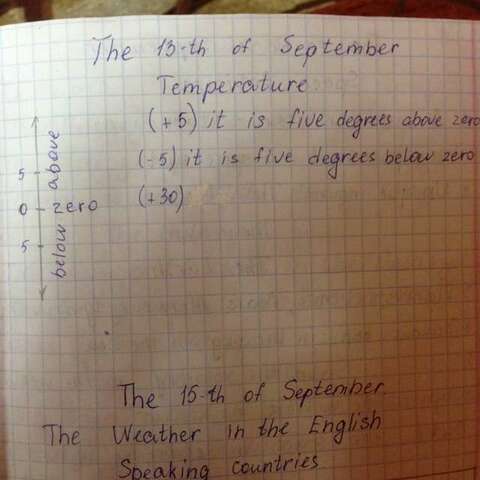 The 13-th of September
Temperature
(+5) it is five degrees above zero
(-5) it is five degrees below zero
(+30)
above
5
0 zero
5
below
The 15-th of September.
The Weather in the English
Speaking countries